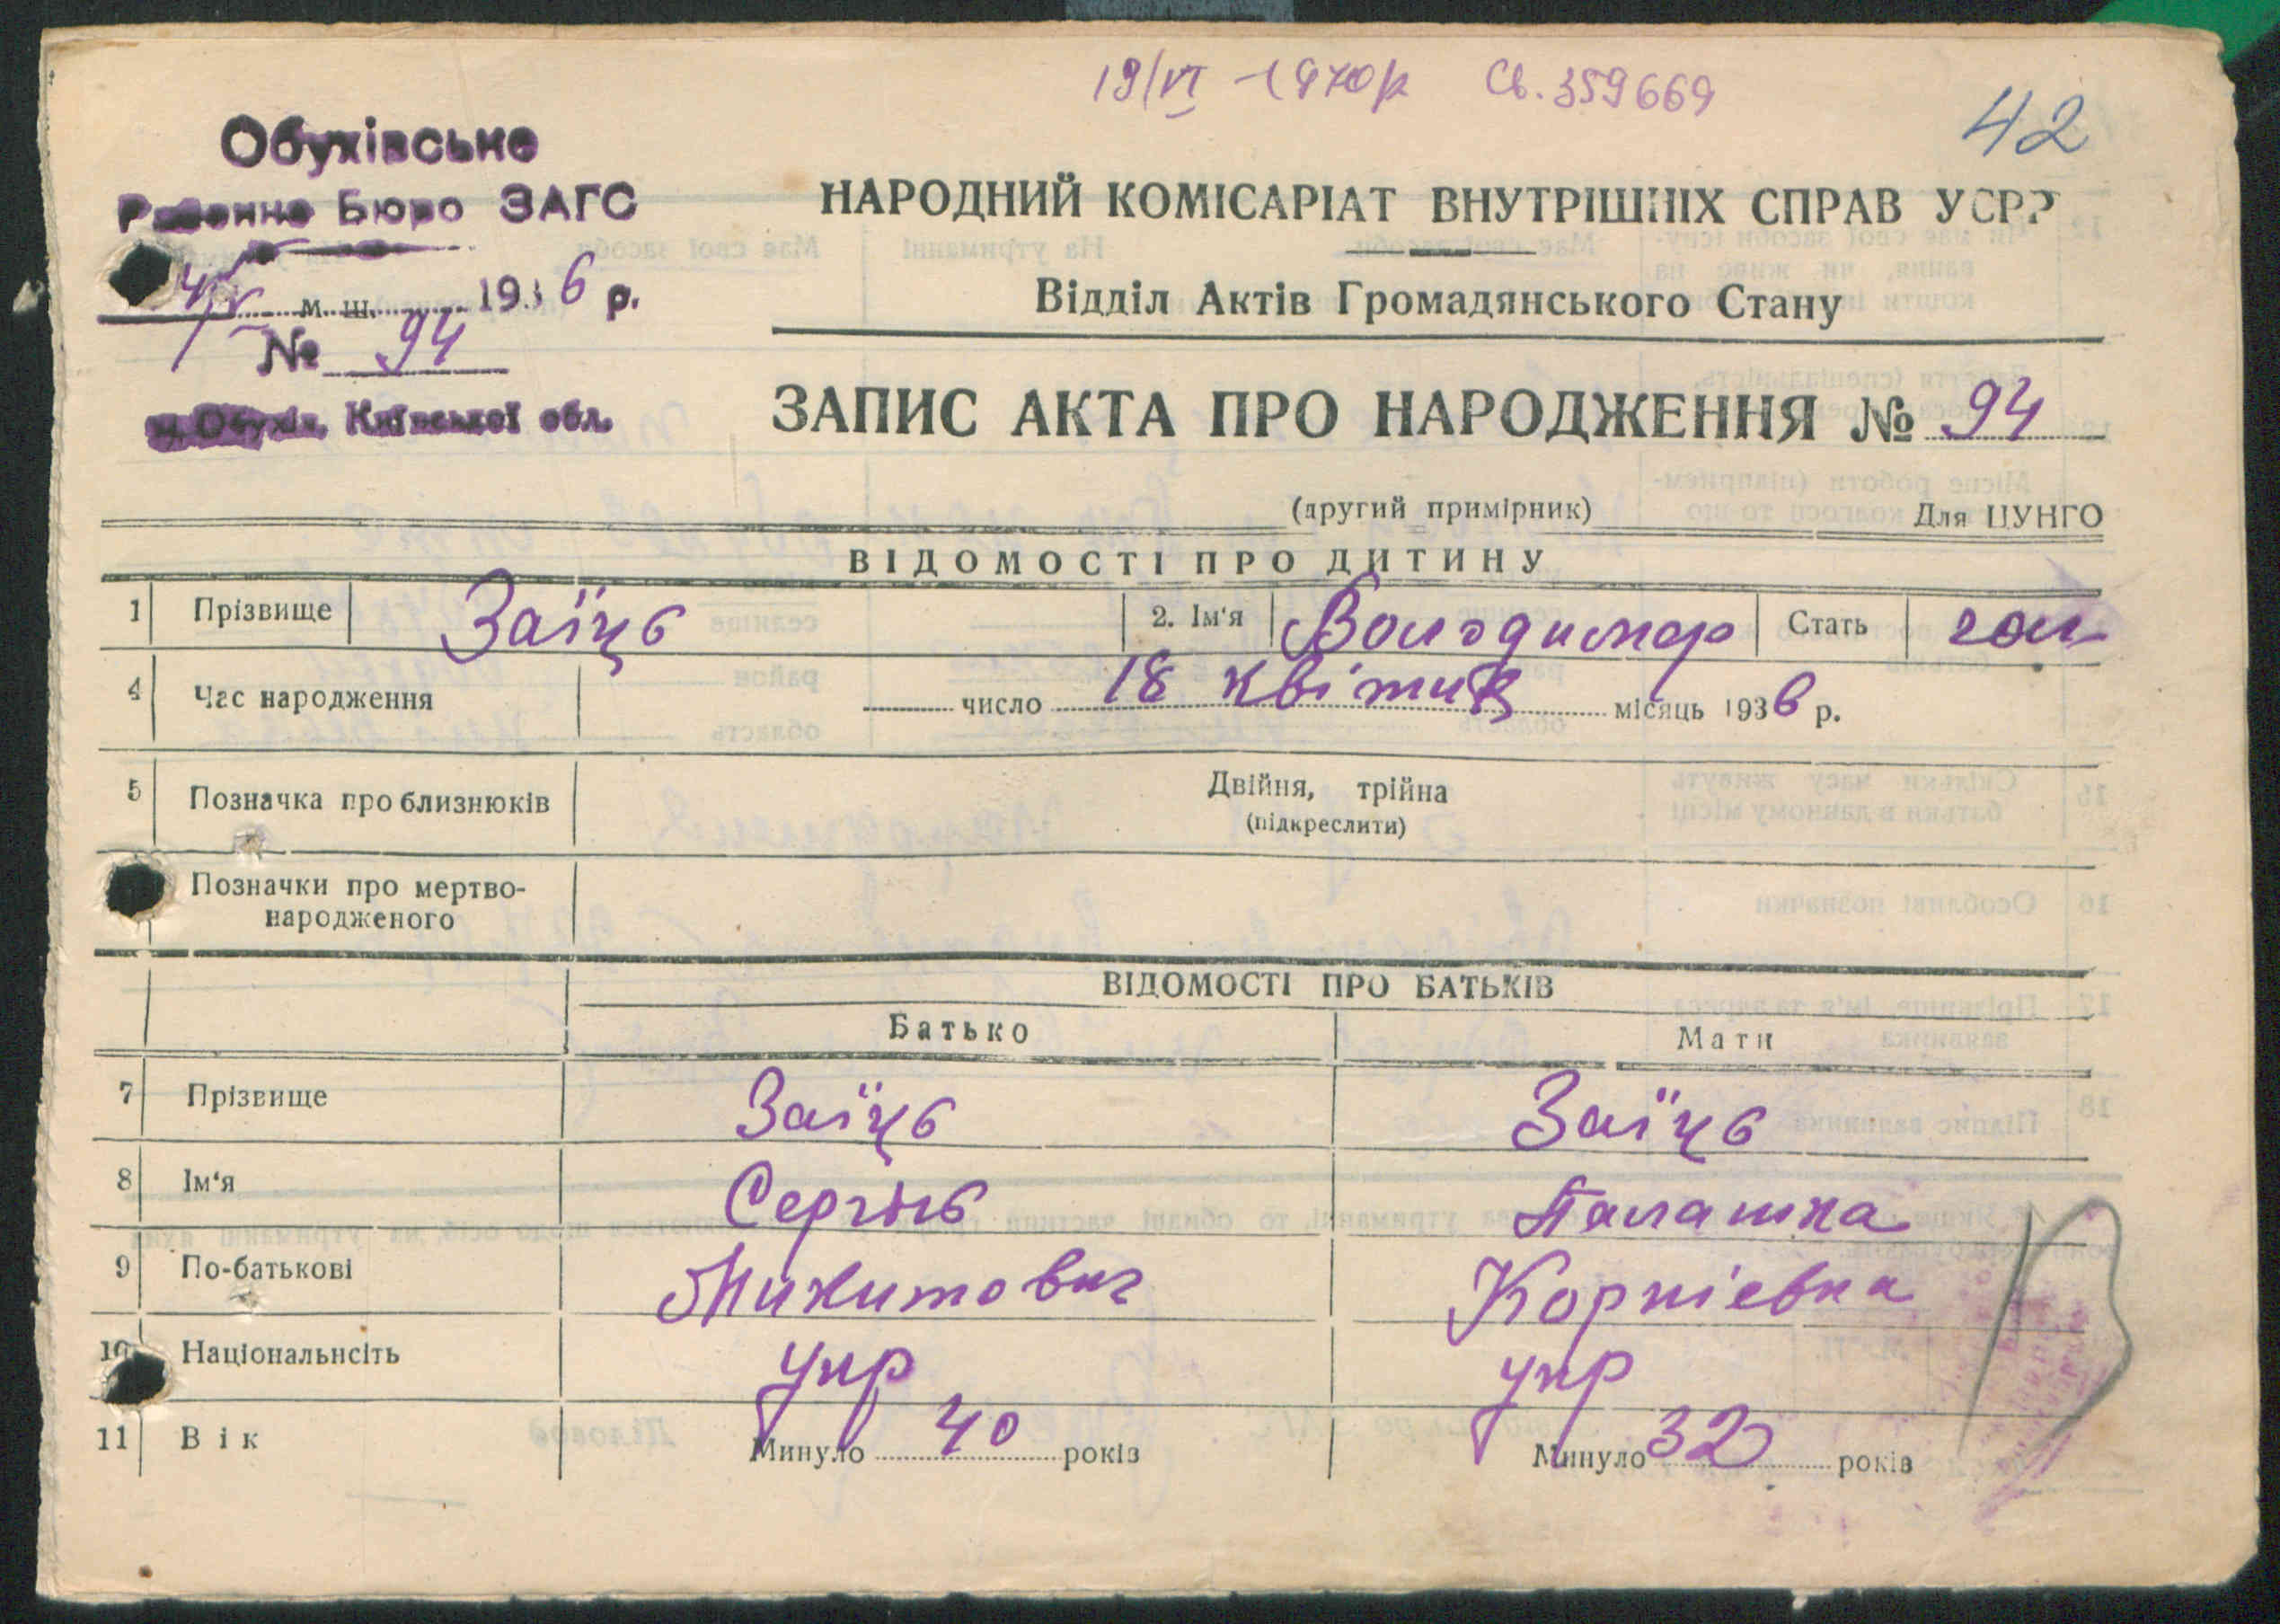 19/VI - 1970 р Св. 359669
42
Обухівське
Районне Бюро ЗАГС
4/V м. ш. 1936 р.
№ 94
м. Обухів, Київської обл.
НАРОДНИЙ КОМІСАРІАТ ВНУТРІШНІХ СПРАВ УСРР
Відділ Актів Громадянського Стану
ЗАПИС АКТА ПРО НАРОДЖЕННЯ № 94
(другий примірник) Для ЦУНГО
ВІДОМОСТІ ПРО ДИТИНУ
1 Прізвище Заїць 2. Ім'я Володимер Стать чол
4 Час народження число 18 квітня місяць 1936 р.
5 Позначка про близнюків Двійня, трійна
(підкреслити)
Позначки про мертво-
народженого
ВІДОМОСТІ ПРО БАТЬКІВ
Батько Мати
7 Прізвище Заїць Заїць
8 Ім'я Сергій Палашка
9 По-батькові Микитович Корніевна
10 Національнсіть укр укр
11 Вік Минуло 40 років Минуло 32 років